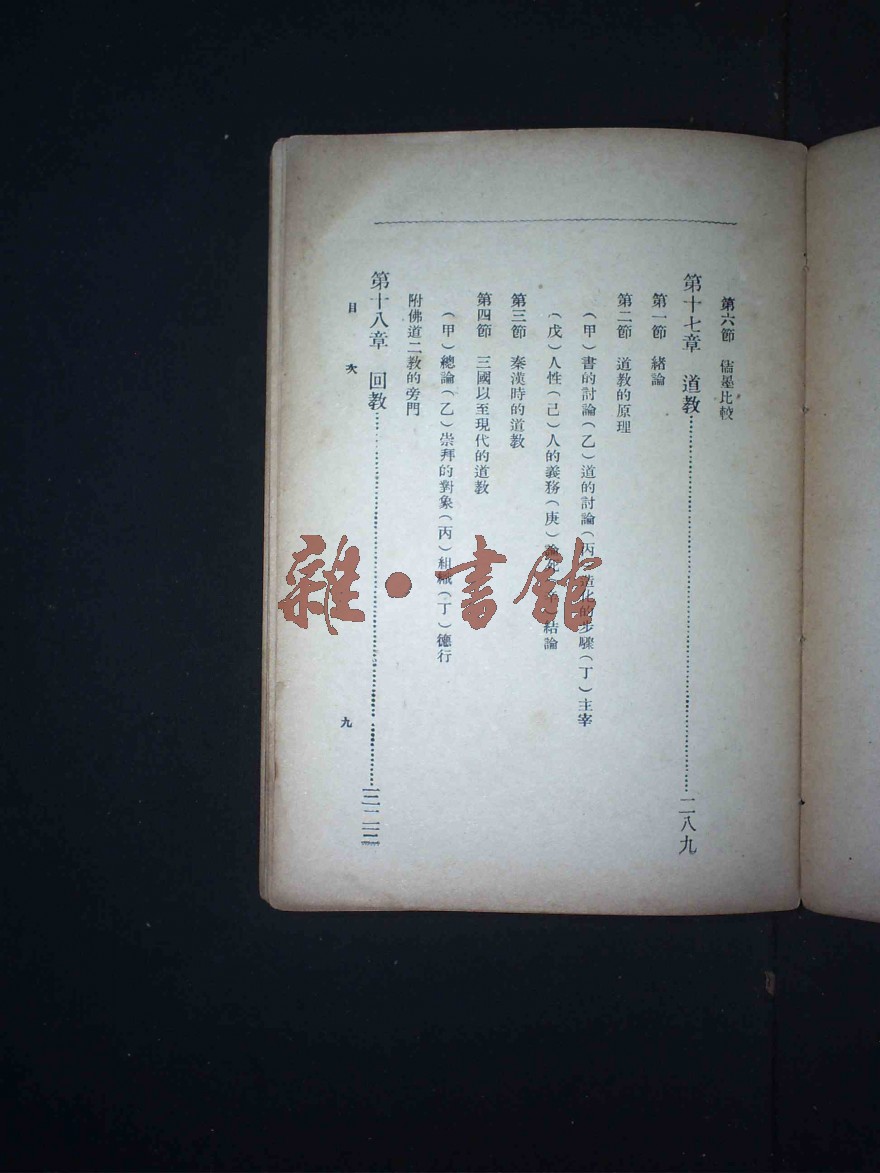 第六節　儒墨比較
第十七章　道教……二八九
第一節　緒論
第二節　道教的原理
（甲）書的討論（乙）道的討論（丙）造化的步驟（丁）主宰
（戊）人性（己）人的義務（庚）論死（辛）結論
第三節　秦漢時的道教
第四節　三國以至現代的道教
（甲）總論（乙）崇拜的對象（丙）組織（丁）德行
附佛道二教的旁門
第十八章　回教……
目次
九
雜·書館